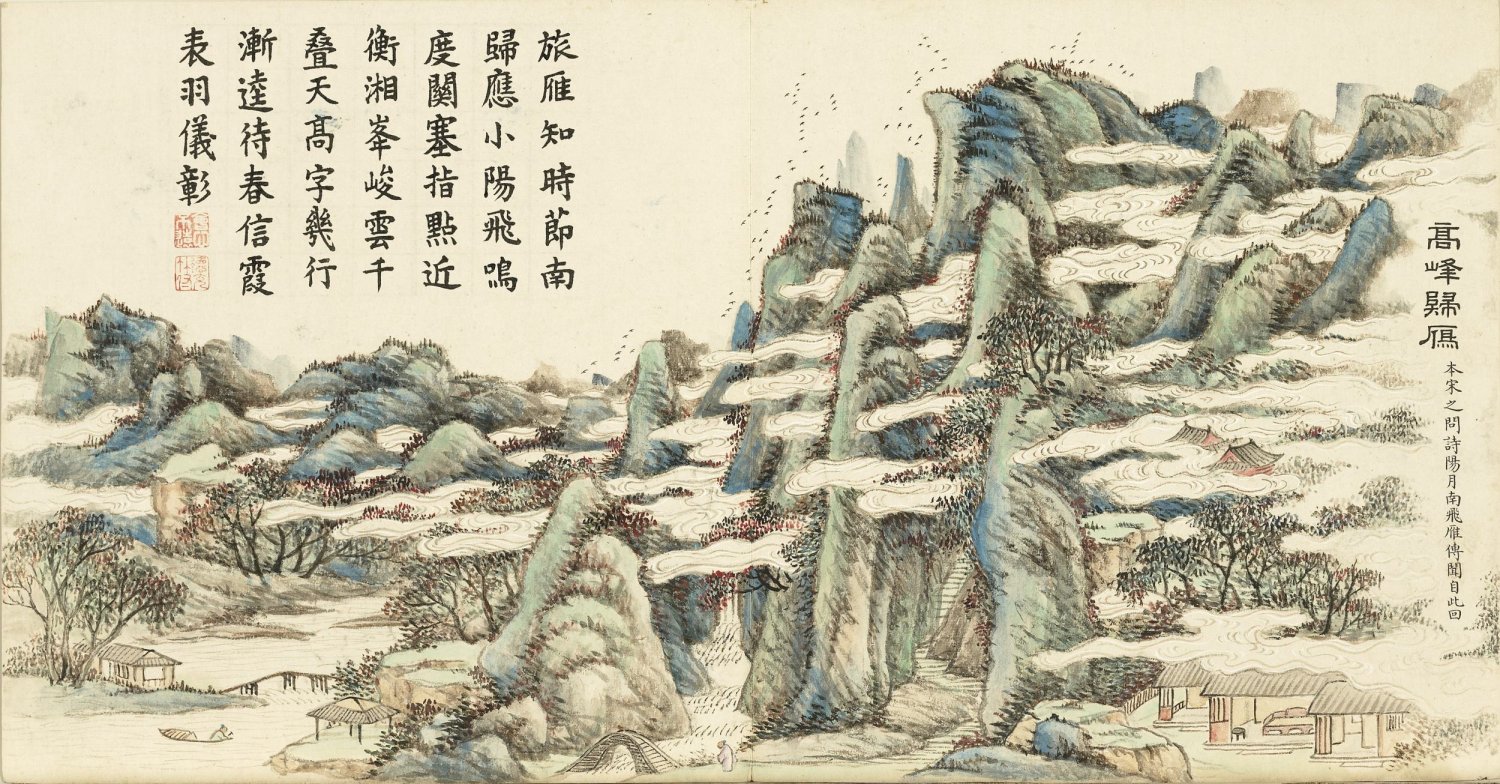 高峰歸鴈
本宋之問詩陽月南飛雁傳聞自此回
旅雁知時節南
歸應小陽飛鳴
度關塞指點近
衡湘峯峻雲千
疊天高字幾行
漸逵待春信霞
表羽儀彰